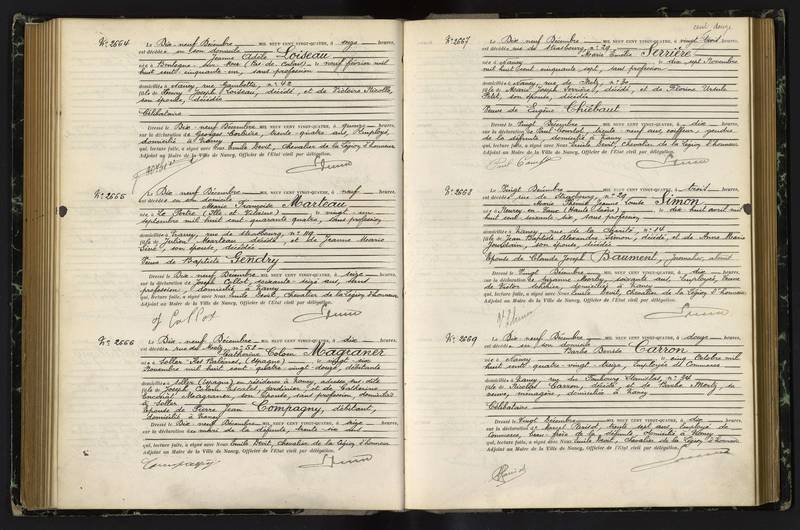 N° 2554
Le Dix-neuf Décembre MIL NEUF CENT VINGT-QUATRE, à onze heures,
est décédée en son domicile
Jeanne Adèle Loiseau
née à Boulogne-sur-Mer (Pas de Calais) le neuf février mil
huit cent cinquante un, sans profession
domiciliée à Nancy, rue Gambetta, n° 42
fille de Joseph Loiseau, décédé, et de Victoire
son épouse, décédée
Célibataire
Dressé le Dix-neuf Décembre MIL NEUF CENT VINGT-QUATRE, à quinze heures,
sur la déclaration de Georges trente quatre ans, Employé,
domicilié à Nancy
qui, lecture faite, a signé avec Nous Emile Chevalier de la Légion d'honneur
Adjoint au Maire de la Ville de Nancy, Officier de l'Etat civil par délégation.
N° 2555
Le Dix-neuf Décembre MIL NEUF CENT VINGT-QUATRE, à neuf heures,
est décédée en son domicile
Marie Françoise Marteau
née à Le Pertre (Ille et Vilaine) le vingt un
septembre mil huit cent quarante quatre, sans profession
domiciliée à Nancy, rue de Strasbourg, n° 119
fille de Julien Marteau, décédé, et de Jeanne Marie
son épouse, décédée
Veuve de Baptiste Gendry
Dressé le Dix-neuf Décembre MIL NEUF CENT VINGT-QUATRE, à seize heures,
sur la déclaration de Joseph Collot, soixante seize ans, sans
profession, domicilié à Nancy
qui, lecture faite, a signé avec Nous Emile Chevalier de la Légion d'honneur
Adjoint au Maire de la Ville de Nancy, Officier de l'Etat civil par délégation.
J Collot
N° 2556
Le Dix-neuf Décembre MIL NEUF CENT VINGT-QUATRE, à dix heures,
est décédée rue de Metz, n° 52
Catherine Colom Magraner
née à Soller (Espagne) le vingt six
Novembre mil huit cent quatre vingt douze, débitante
domiciliée à Soller (Espagne) en résidence à Nancy,
fille de Joseph Colom, jardinier, et de Catherine
Magraner, son épouse, sans profession, domiciliés
à Soller
Epouse de Pierre Jean Compagny, débitant,
domicilié à Nancy
Dressé le Dix-neuf Décembre MIL NEUF CENT VINGT-QUATRE, à seize heures,
sur la déclaration du mari de la défunte, trente six ans
qui, lecture faite, a signé avec Nous Emile Chevalier de la Légion d'honneur
Adjoint au Maire de la Ville de Nancy, Officier de l'Etat civil par délégation.
Compagny
cent douze
N° 2557
Le Dix-neuf Décembre MIL NEUF CENT VINGT-QUATRE, à vingt trois heures,
est décédée rue de Strasbourg, n° 29
Marie Emilie Serrière
née à Nancy le dix sept Novembre
mil huit cent cinquante sept, sans profession
domiciliée à Nancy, rue de Metz, n° 30
fille de Joseph Serrière, décédé, et de Florine Ursule
son épouse, décédée
Veuve de Eugène Chiébaut
Dressé le Vingt Décembre MIL NEUF CENT VINGT-QUATRE, à dix heures,
sur la déclaration de Paul trente neuf ans, coiffeur, gendre
de la défunte, domicilié à Nancy
qui, lecture faite, a signé avec Nous Emile Chevalier de la Légion d'honneur
Adjoint au Maire de la Ville de Nancy, Officier de l'Etat civil par délégation.
N° 2558
Le Vingt Décembre MIL NEUF CENT VINGT-QUATRE, à trois heures,
est décédée rue de Strasbourg, n° 29
Marie Jeanne Louise Simon
née à (Haute Saône) le dix huit avril mil
huit cent soixante six, sans profession
domiciliée à Nancy, rue de la Charité, n° 14
fille de Jean Baptiste Alexandre Simon, décédé, et de Anne Marie
son épouse, décédée
Epouse de Claude Joseph Baument, journalier, absent
Dressé le Vingt Décembre MIL NEUF CENT VINGT-QUATRE, à dix heures,
sur la déclaration de Suzanne soixante ans, Employée, Veuve
de Victor domiciliée à Nancy
qui, lecture faite, a signé avec Nous Emile Chevalier de la Légion d'honneur
Adjoint au Maire de la Ville de Nancy, Officier de l'Etat civil par délégation.
N° 2559
Le Dix-neuf Décembre MIL NEUF CENT VINGT-QUATRE, à douze heures,
est décédée en son domicile
Barbe Carron
née à Nancy le cinq Octobre mil
huit cent quatre-vingt-treize, Employée de Commerce
domiciliée à Nancy, rue du Faubourg Stanislas, n° 34
fille de Nicolas Carron, décédé, et de Barbe sa
veuve, ménagère, domiciliée à Nancy
Célibataire
Dressé le Vingt Décembre MIL NEUF CENT VINGT-QUATRE, à dix heures,
sur la déclaration de Marcel trente sept ans, Employé de
Commerce, beau-frère de la défunte, domicilié à Nancy
qui, lecture faite, a signé avec Nous Emile Chevalier de la Légion d'honneur
Adjoint au Maire de la Ville de Nancy, Officier de l'Etat civil par délégation.